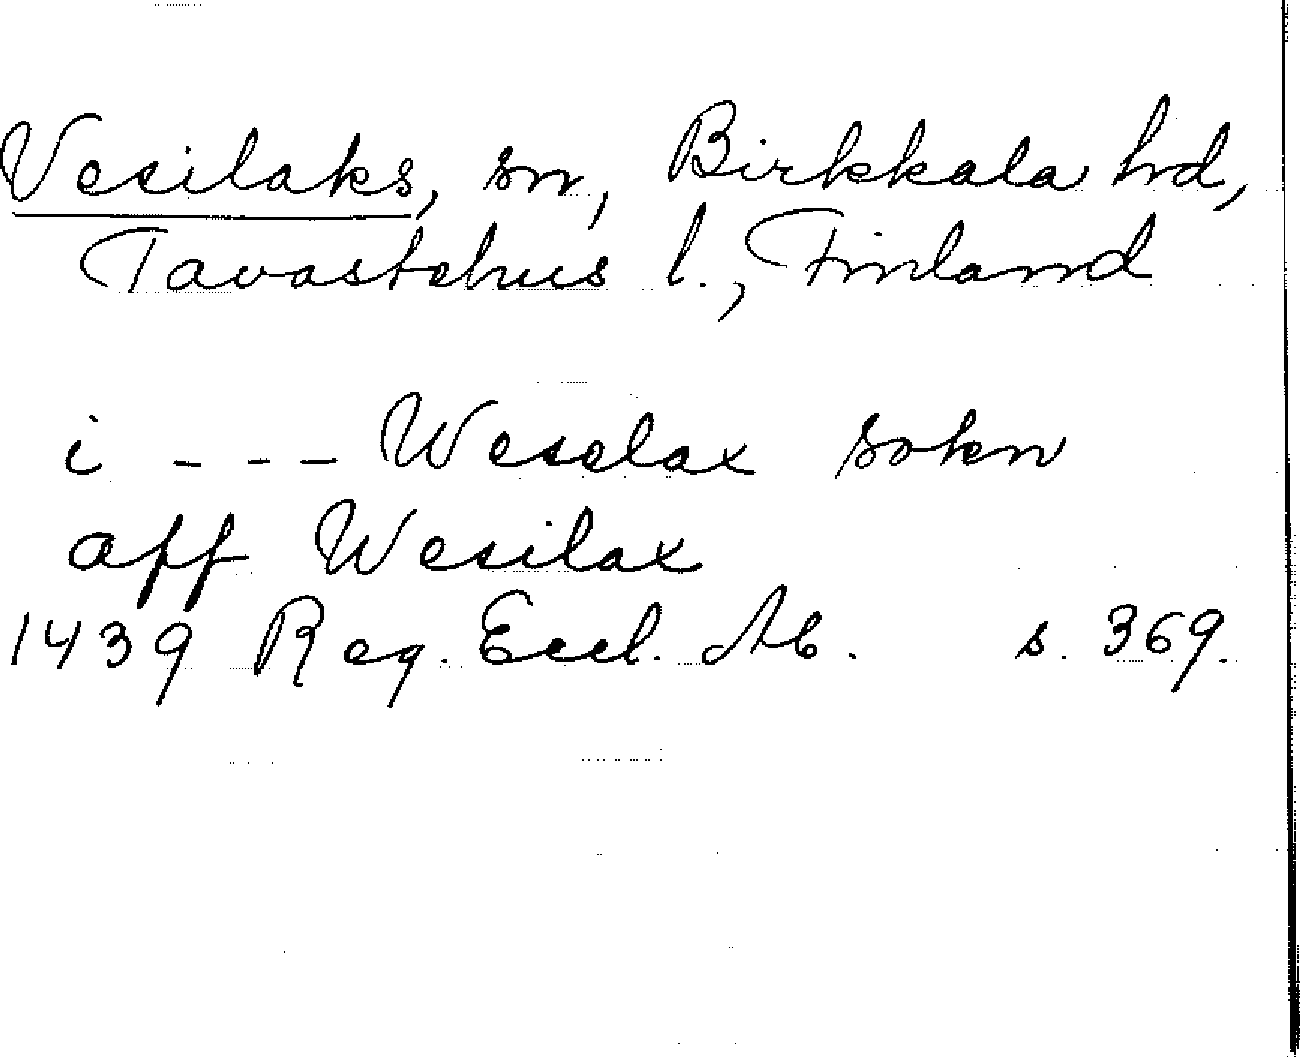 Vesilaks, sn, Birkkala hrd,
Tavastehus l., Finland
i - - - Weselax sokn
aff Wesilax
1439 Reg. Eccl. Ab. s. 369.